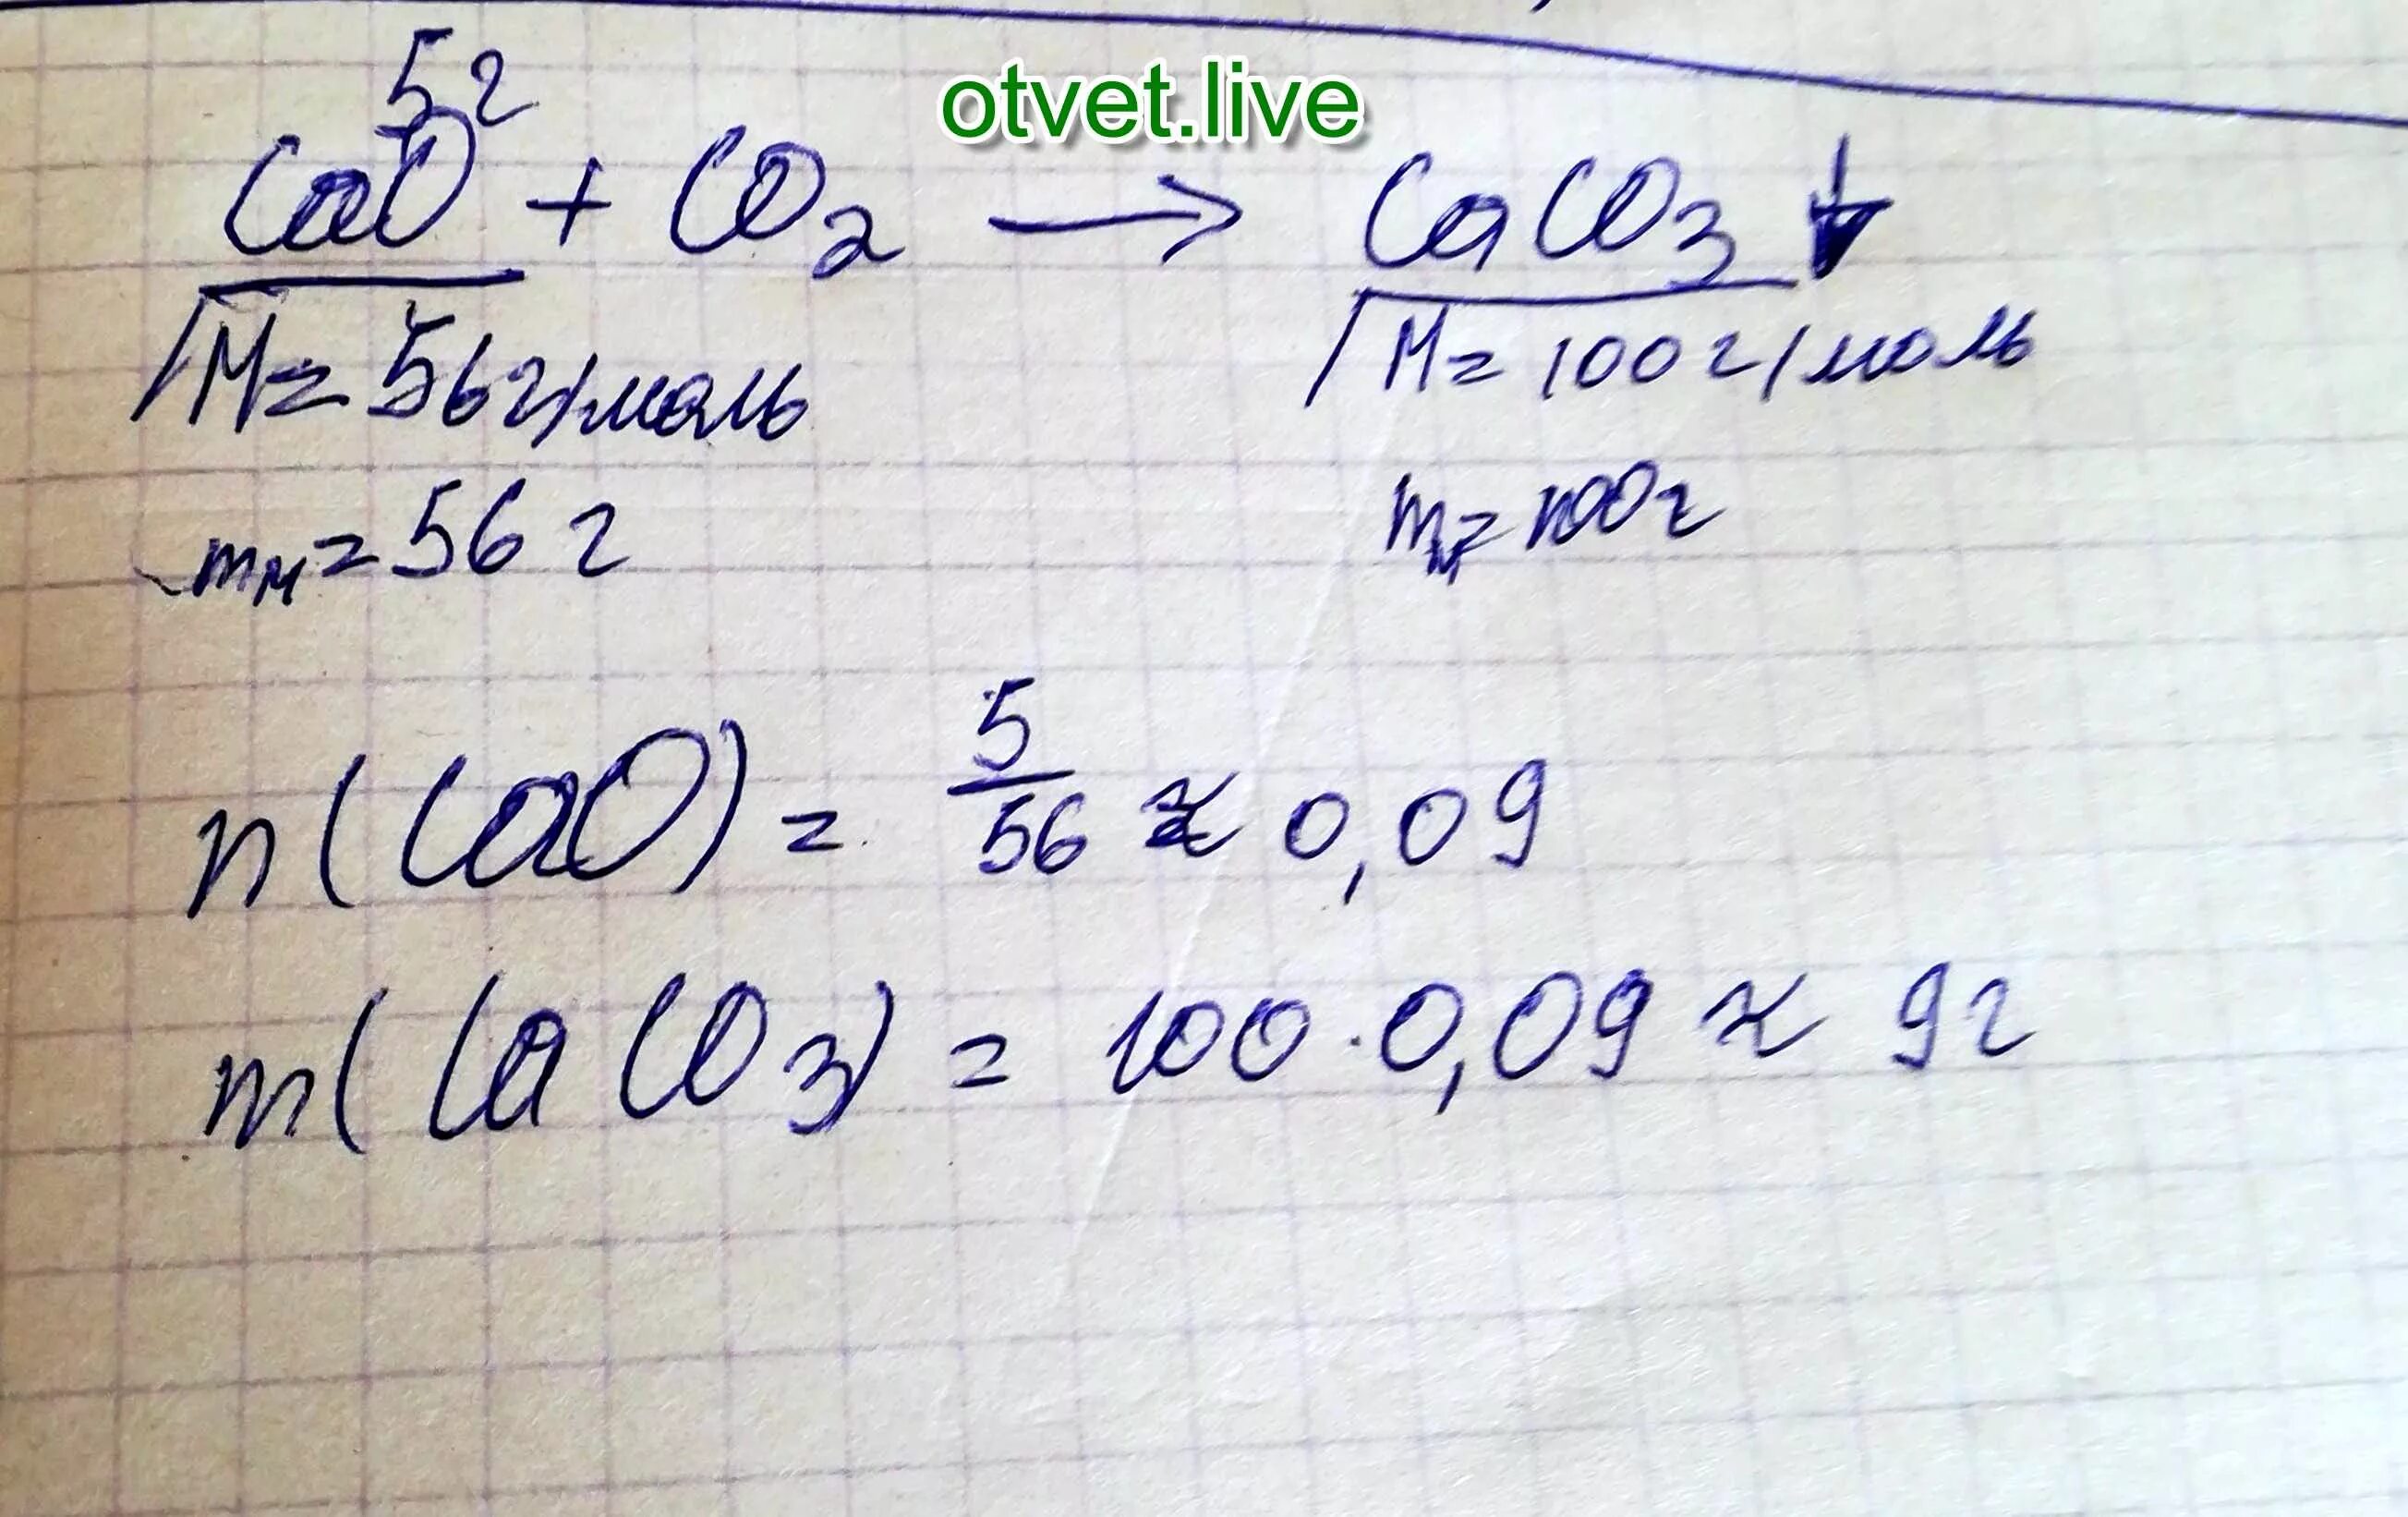 otvet.live
5г
CaO + CO₂ → CaCO₃↓
M = 56г/моль M = 100г/моль
mм = 56 г mм = 100г
n(CaO) = 5/56 ≈ 0,09
m(CaCO₃) = 100 · 0,09 ≈ 9г